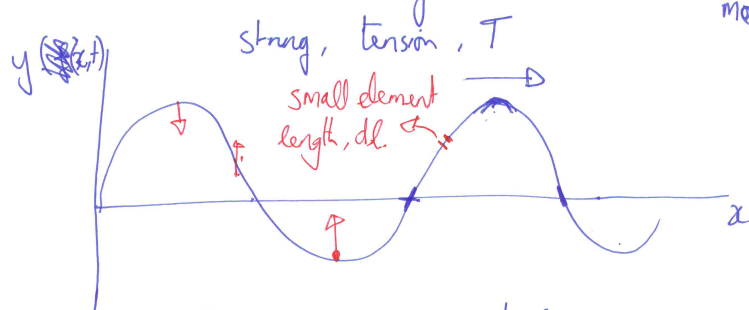 string, tension, T
y (x,t)
small element
length, dl.
x